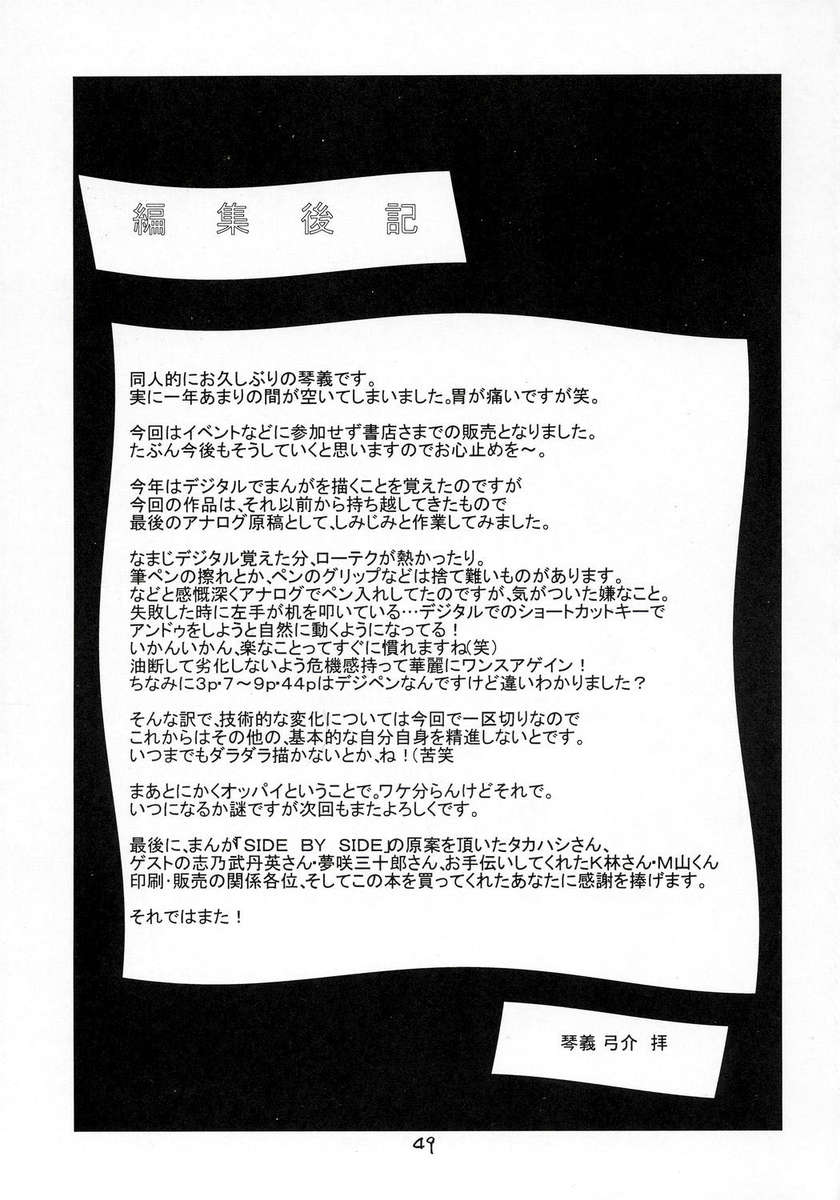 編集後記
同人的にお久しぶりの琴義です。
実に一年あまりの間が空いてしまいました。胃が痛いですが笑。
今回はイベントなどに参加せず書店さまでの販売となりました。
たぶん今後もそうしていくと思いますのでお心止めを～。
今年はデジタルでまんがを描くことを覚えたのですが
今回の作品は、それ以前から持ち越してきたもので
最後のアナログ原稿として、しみじみと作業してみました。
なまじデジタル覚えた分、ローテクが熱かったり。
筆ペンの擦れとか、ペンのグリップなどは捨て難いものがあります。
などと感慨深くアナログでペン入れしてたのですが、気がついた嫌なこと。
失敗した時に左手が机を叩いている…デジタルでのショートカットキーで
アンドゥをしようと自然に動くようになってる！
いかんいかん、楽なことってすぐに慣れますね(笑)
油断して劣化しないよう危機感持って華麗にワンスアゲイン！
ちなみに3p・7～9p・44pはデジペンなんですけど違いわかりました？
そんな訳で、技術的な変化については今回で一区切りなので
これからはその他の、基本的な自分自身を精進しないとです。
いつまでもダラダラ描かないとか、ね！(苦笑
まあとにかくオッパイということで。ワケ分らんけどそれで。
いつになるか謎ですが次回もまたよろしくです。
最後に、まんが「SIDE BY SIDE」の原案を頂いたタカハシさん、
ゲストの志乃武丹英さん・夢咲三十郎さん、お手伝いしてくれたK林さん・M山くん
印刷・販売の関係各位、そしてこの本を買ってくれたあなたに感謝を捧げます。
それではまた！
琴義 弓介 拝
49